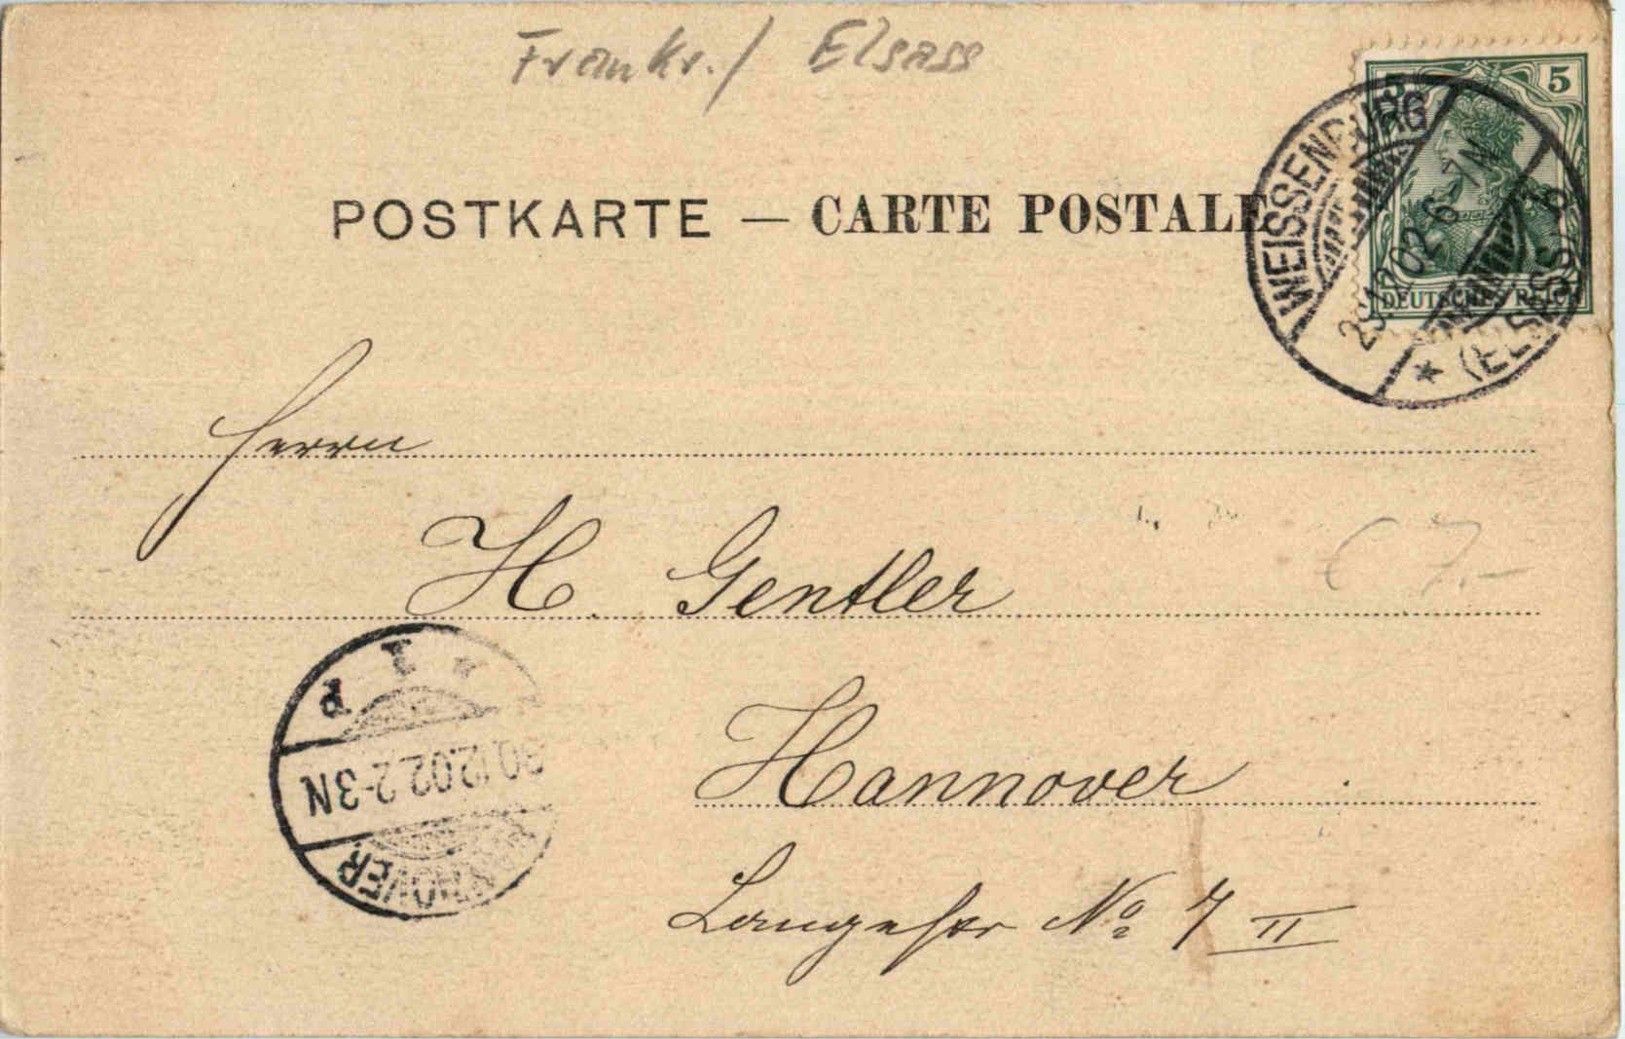 Frankr./ Elsass
5 5
POSTKARTE — CARTE POSTALE
WEISSENBURG
29.12.02. 6-7N
* (ELSASS) b
DEUTSCHES REICH
Herrn
H. Gentler
€ 7.-
Hannover
Langestr No 7 II
HANNOVER
30.12.02. 2-3N
* 1 P